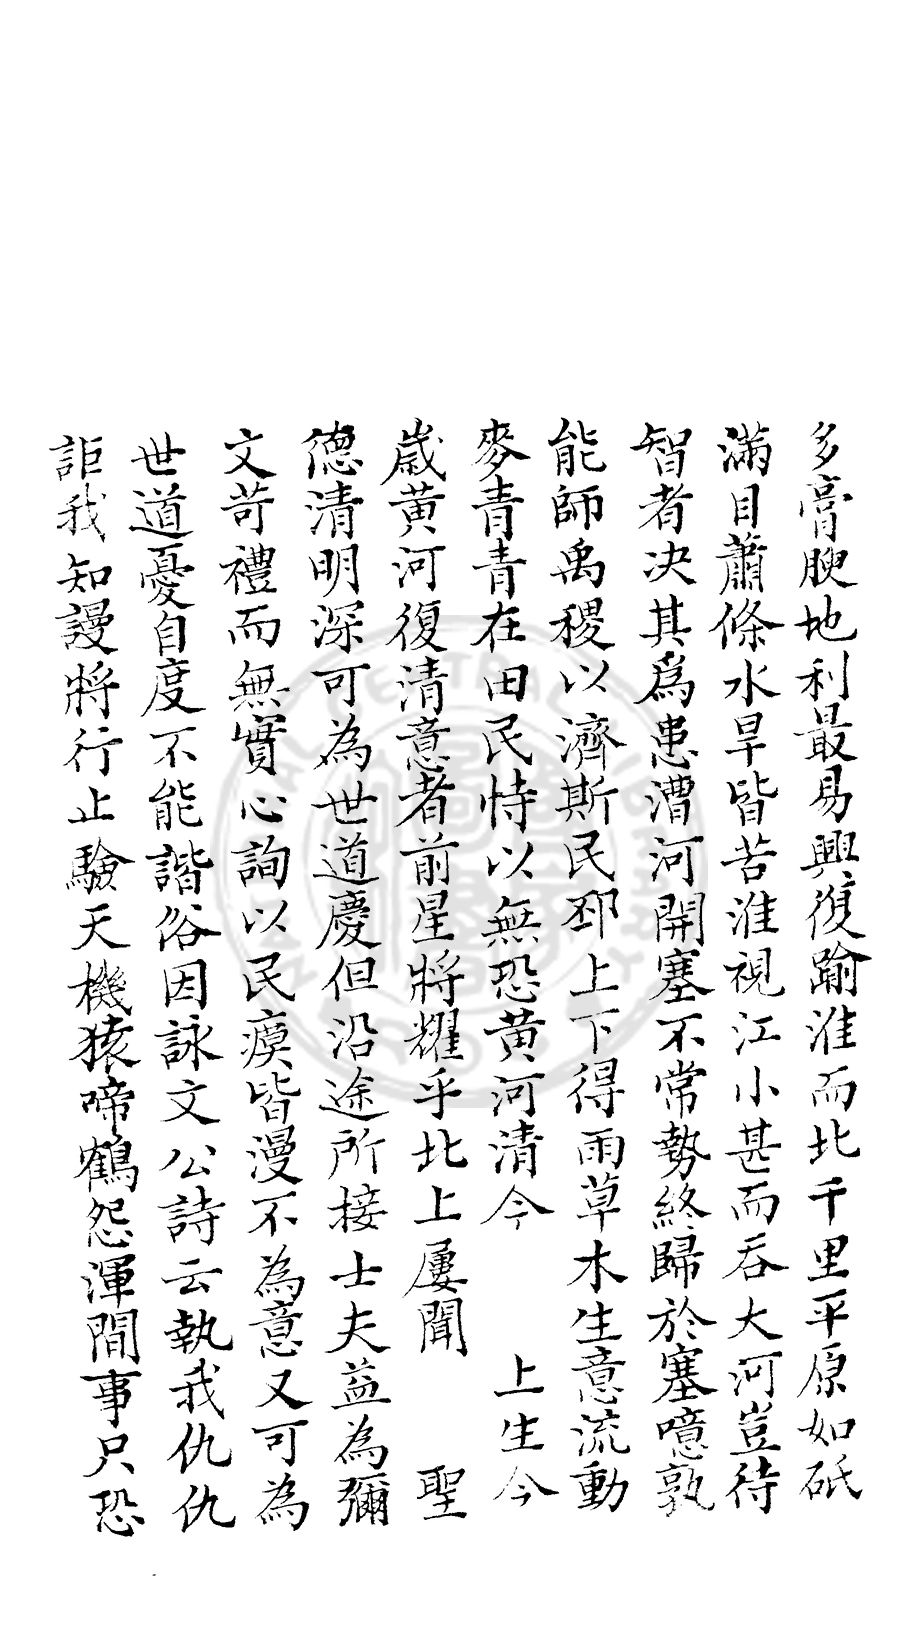 多膏腴地利最易興復踰淮而北千里平原如砥
滿目蕭條水旱皆苦淮視江小甚而吞大河豈待
智者决其爲患漕河開塞不常勢終歸於塞噫孰
能師禹稷以濟斯民邳上下得雨草木生意流動
麥青青在田民恃以無恐黄河清今　　上生今
歲黄河復清意者前星將耀乎北上屢聞　　聖
德清明深可為世道慶但沿途所接士夫益為彌
文苛禮而無實心詢以民瘼皆漫不為意又可為
世道憂自度不能諧俗因詠文公詩云執我仇仇
詎我知謾將行止驗天機猿啼鶴怨渾閒事只恐